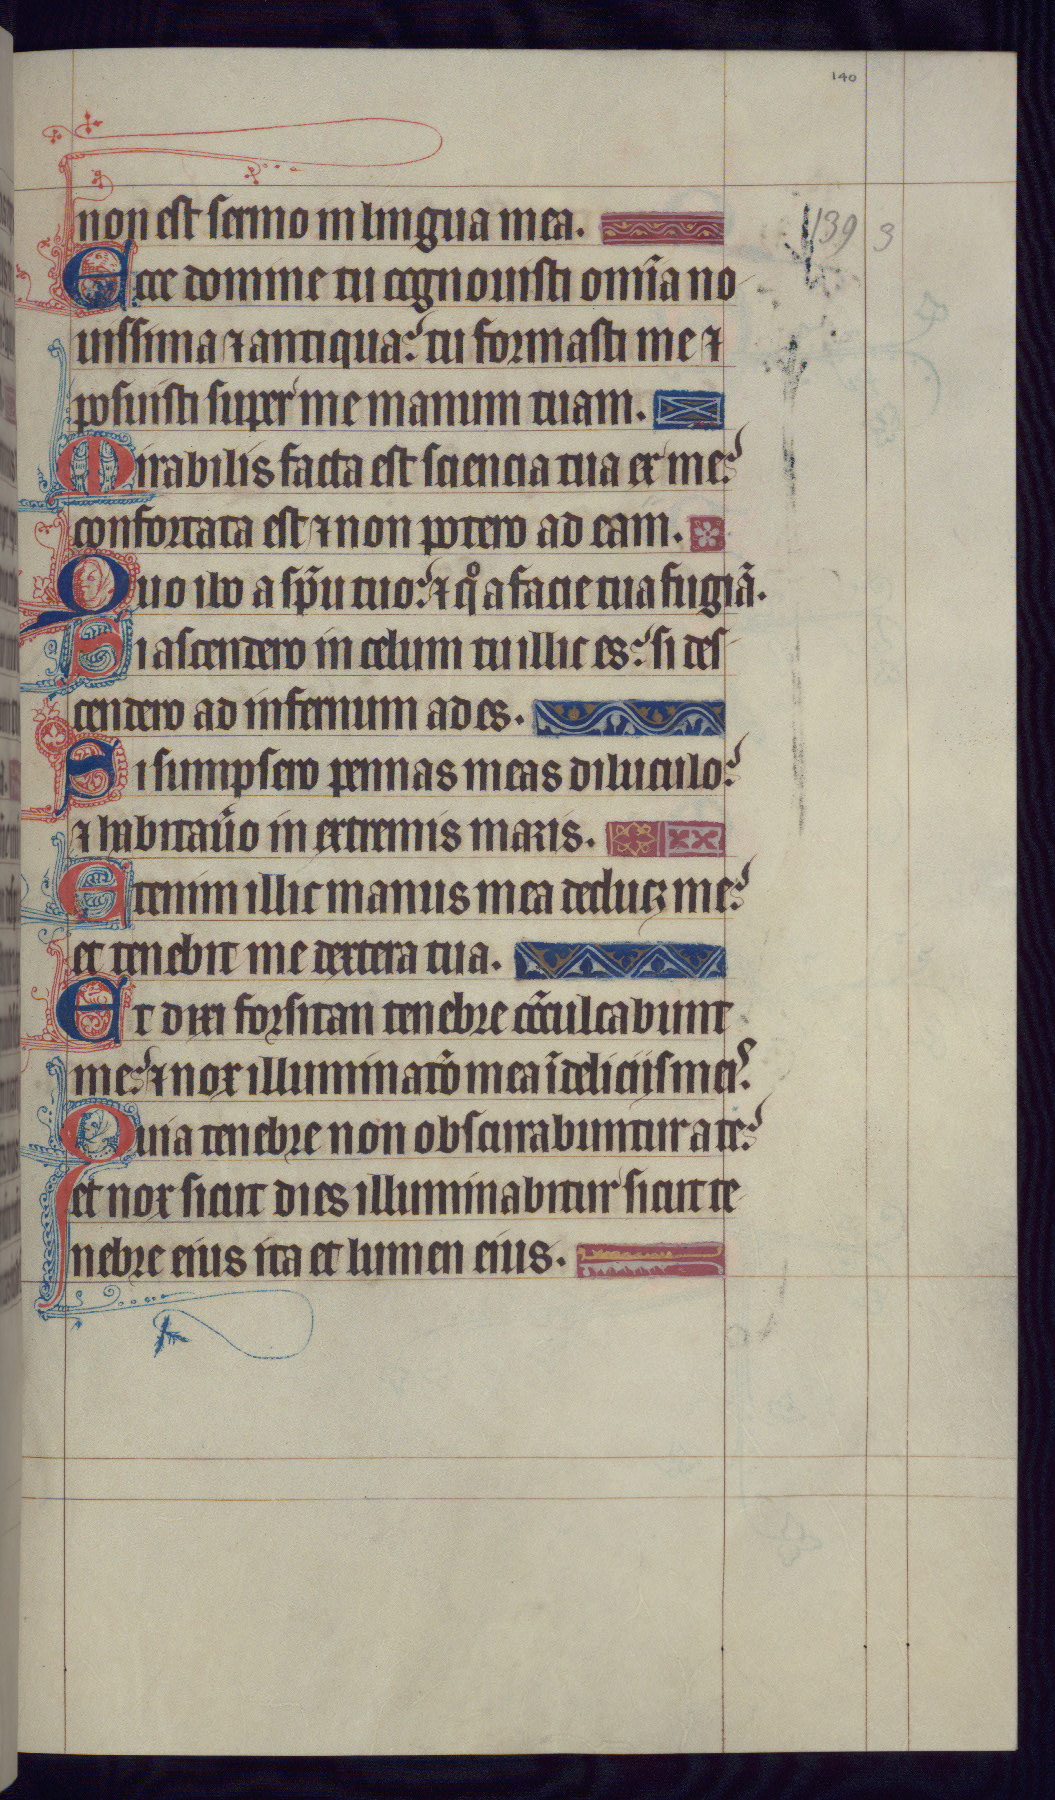 140
non est sermo in lingua mea.
139 3
Ecce domine tu cognouisti om̄ia no
uissima ⁊ antiqua: tu formasti me ⁊
posuisti super me manum tuam.
Mirabilis facta est sciencia tua ex me:
confortata est ⁊ non potero ad eam.
Quo ibo a sp̄u tuo: ⁊ qͦ a facie tua fugiā.
Si ascendero in celum tu illic es: si des
cendero ad infernum ad es.
Si sumpsero pennas meas diluculo:
⁊ habitau̓o in extremis maris.
Etenim illic manus mea deducꝫ me:
et tenebit me dextera tua.
Et dixi forsitan tenebre cōculcabunt
me: ⁊ nox illuminatō mea ī deliciis meis.
Quia tenebre non obscurabuntur a te:
et nox sicut dies illuminabitur sicut te
nebre eius ita et lumen eius.